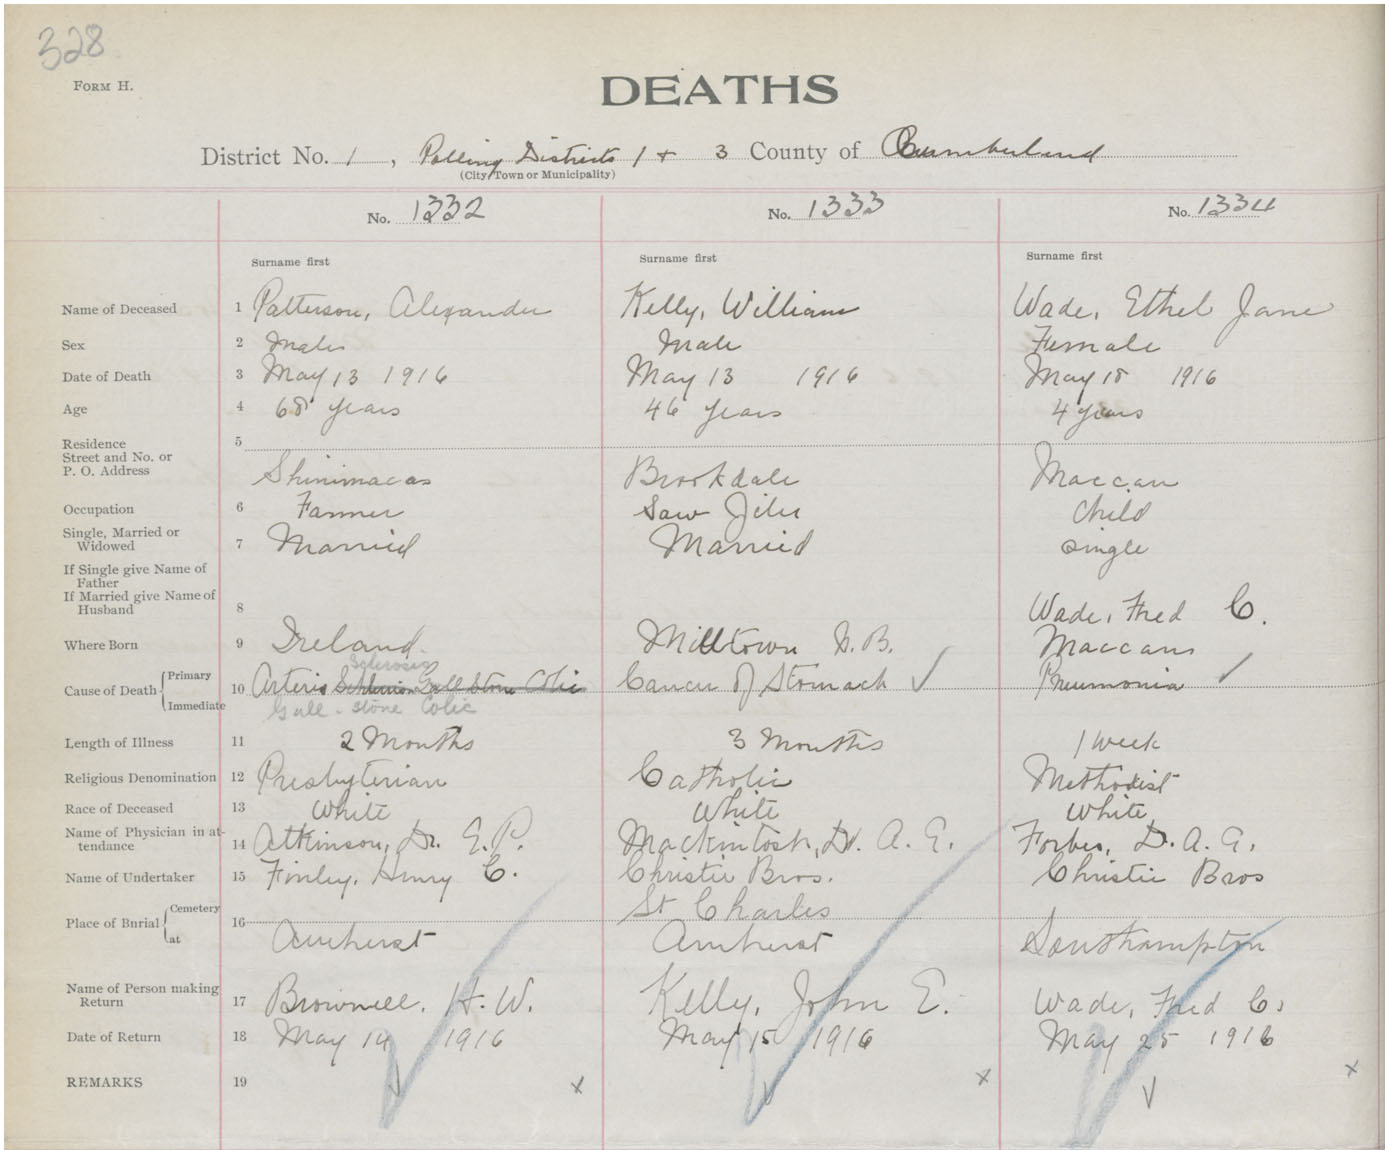 328
FORM H.
DEATHS
District No. 1, Polling Districts 1 + 3 County of Cumberland
(City, Town or Municipality)
No. 1332 No. 1333 No. 1334
Surname first Surname first Surname first
Name of Deceased 1 Patterson, Alexander Kelly, William Wade, Ethel Jane
Sex 2 Male Male Female
Date of Death 3 May 13 1916 May 13 1916 May 18 1916
Age 4 68 years 46 years 4 years
Residence 5
Street and No. or
P. O. Address
Shinimacas Brookdale Maccan
Occupation 6 Farmer Saw Filer Child
Single, Married or
Widowed 7 Married Married Single
If Single give Name of
Father
If Married give Name of
Husband 8 Wade, Fred C.
Where Born 9 Ireland. Milltown N.B. Maccan
Sclerosis
Cause of Death Primary 10 Arterio Gall Stone Colic Cancer of Stomach ✓ Pneumonia ✓
Immediate Gall-stone Colic
Length of Illness 11 2 Months 3 Months 1 week
Religious Denomination 12 Presbyterian Catholic Methodist
Race of Deceased 13 White White White
Name of Physician in at-
tendance 14 Atkinson, Dr. E.P. Mackintosh, Dr. A. E. Forbes, D. A. G.
Name of Undertaker 15 Finley, Henry C. Christie Bros. Christie Bros
Place of Burial Cemetery 16 St Charles
at Amherst Amherst Southampton
Name of Person making
Return 17 Brownell, H. W. Kelly, John E. Wade, Fred C.
Date of Return 18 May 14 1916 May 15 1916 May 25 1916
REMARKS 19 x x x